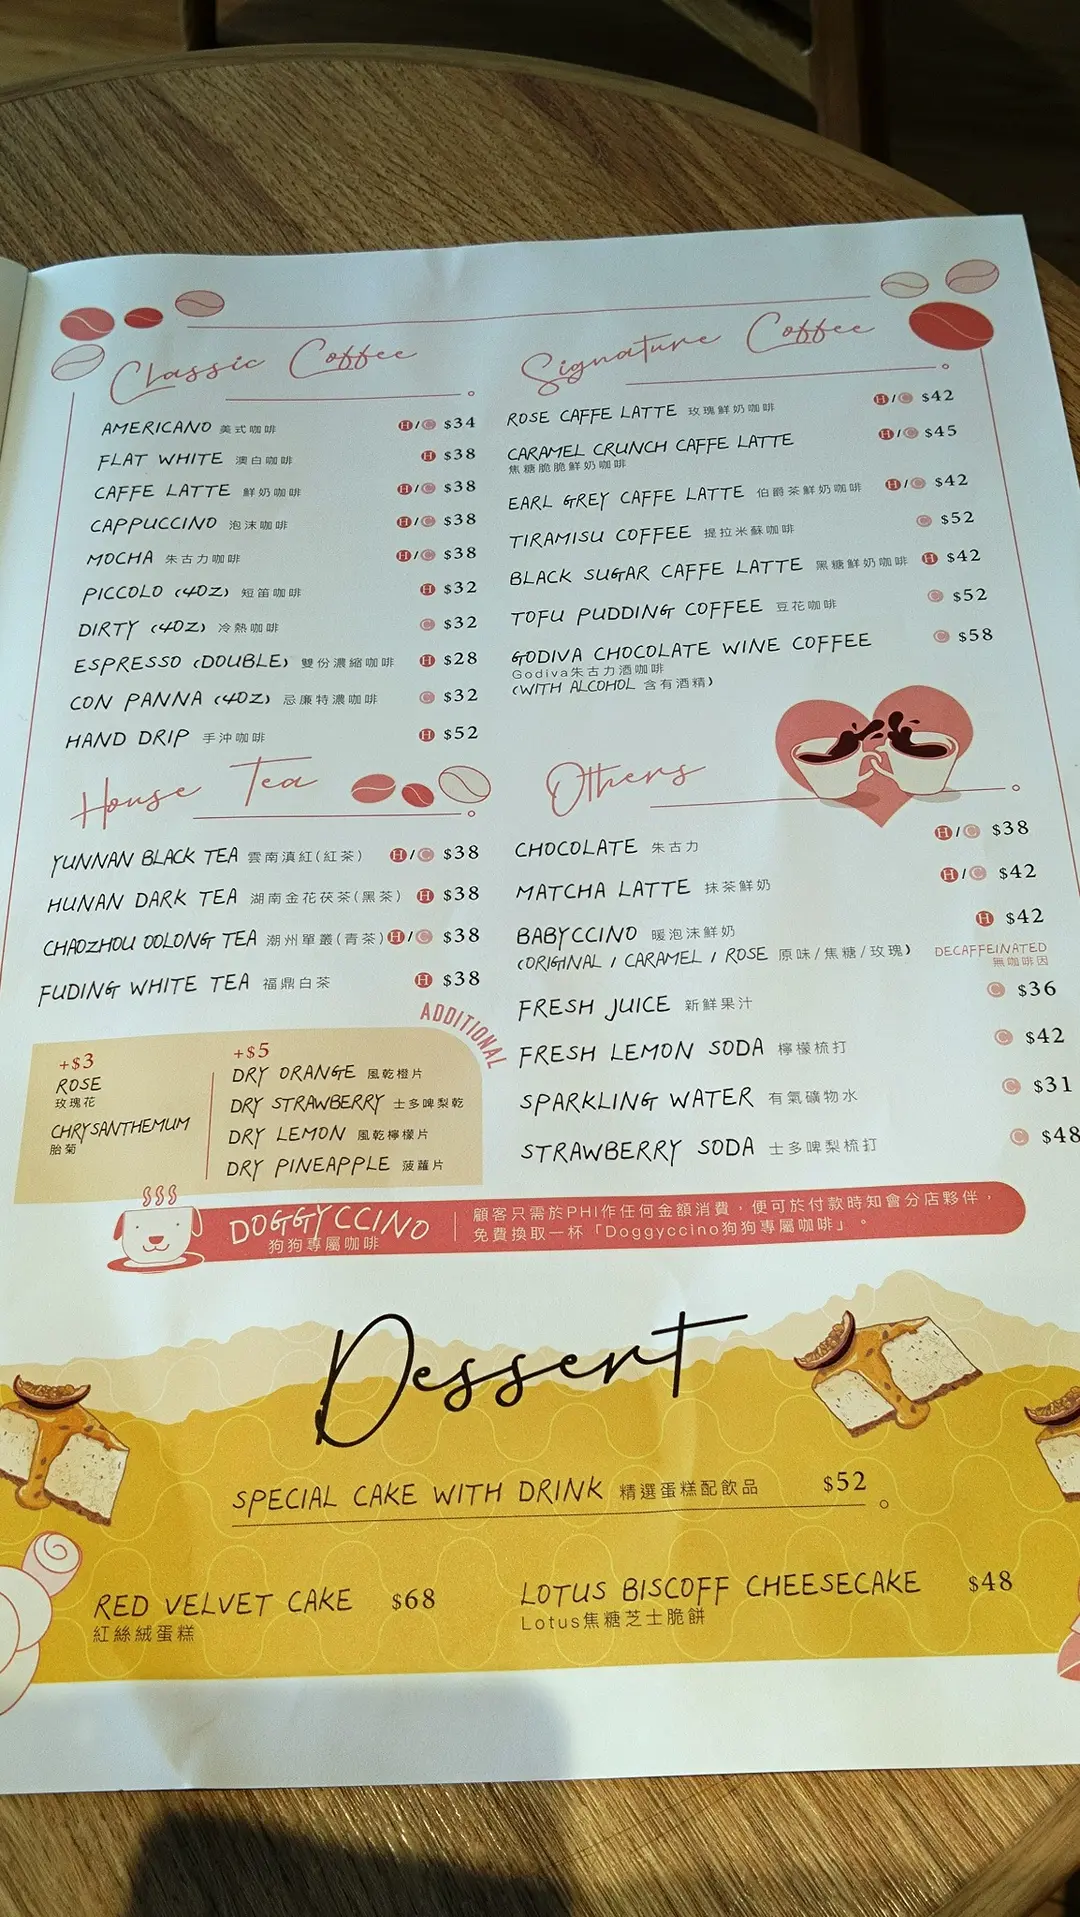 Classic Coffee
AMERICANO 美式咖啡 H/C $34
FLAT WHITE 澳白咖啡 H $38
CAFFE LATTE 鮮奶咖啡 H/C $38
CAPPUCCINO 泡沫咖啡 H/C $38
MOCHA 朱古力咖啡 H/C $38
PICCOLO (4OZ) 短笛咖啡 H $32
DIRTY (4OZ) 冷熱咖啡 C $32
ESPRESSO (DOUBLE) 雙份濃縮咖啡 H $28
CON PANNA (4OZ) 忌廉特濃咖啡 C $32
HAND DRIP 手沖咖啡 H $52
Signature Coffee
ROSE CAFFE LATTE 玫瑰鮮奶咖啡 H/C $42
CARAMEL CRUNCH CAFFE LATTE H/C $45
焦糖脆脆鮮奶咖啡
EARL GREY CAFFE LATTE 伯爵茶鮮奶咖啡 H/C $42
TIRAMISU COFFEE 提拉米蘇咖啡 C $52
BLACK SUGAR CAFFE LATTE 黑糖鮮奶咖啡 H $42
TOFU PUDDING COFFEE 豆花咖啡 C $52
GODIVA CHOCOLATE WINE COFFEE C $58
Godiva朱古力酒咖啡
(WITH ALCOHOL 含有酒精)
House Tea
YUNNAN BLACK TEA 雲南滇紅(紅茶) H/C $38
HUNAN DARK TEA 湖南金花茯茶(黑茶) H $38
CHAOZHOU OOLONG TEA 潮州單叢(青茶) H/C $38
FUDING WHITE TEA 福鼎白茶 H $38
ADDITIONAL
+$3
ROSE
玫瑰花
CHRYSANTHEMUM
胎菊
+$5
DRY ORANGE 風乾橙片
DRY STRAWBERRY 士多啤梨乾
DRY LEMON 風乾檸檬片
DRY PINEAPPLE 菠蘿片
Others
CHOCOLATE 朱古力 H/C $38
MATCHA LATTE 抹茶鮮奶 H/C $42
BABYCCINO 暖泡沫鮮奶 H $42
(ORIGINAL / CARAMEL / ROSE 原味/焦糖/玫瑰) DECAFFEINATED
無咖啡因
FRESH JUICE 新鮮果汁 C $36
FRESH LEMON SODA 檸檬梳打 C $42
SPARKLING WATER 有氣礦物水 C $31
STRAWBERRY SODA 士多啤梨梳打 C $48
DOGGYCCINO
狗狗專屬咖啡
顧客只需於PHI作任何金額消費，便可於付款時知會分店夥伴，
免費換取一杯「Doggyccino狗狗專屬咖啡」。
Dessert
SPECIAL CAKE WITH DRINK 精選蛋糕配飲品 $52
RED VELVET CAKE $68
紅絲絨蛋糕
LOTUS BISCOFF CHEESECAKE $48
Lotus焦糖芝士脆餅